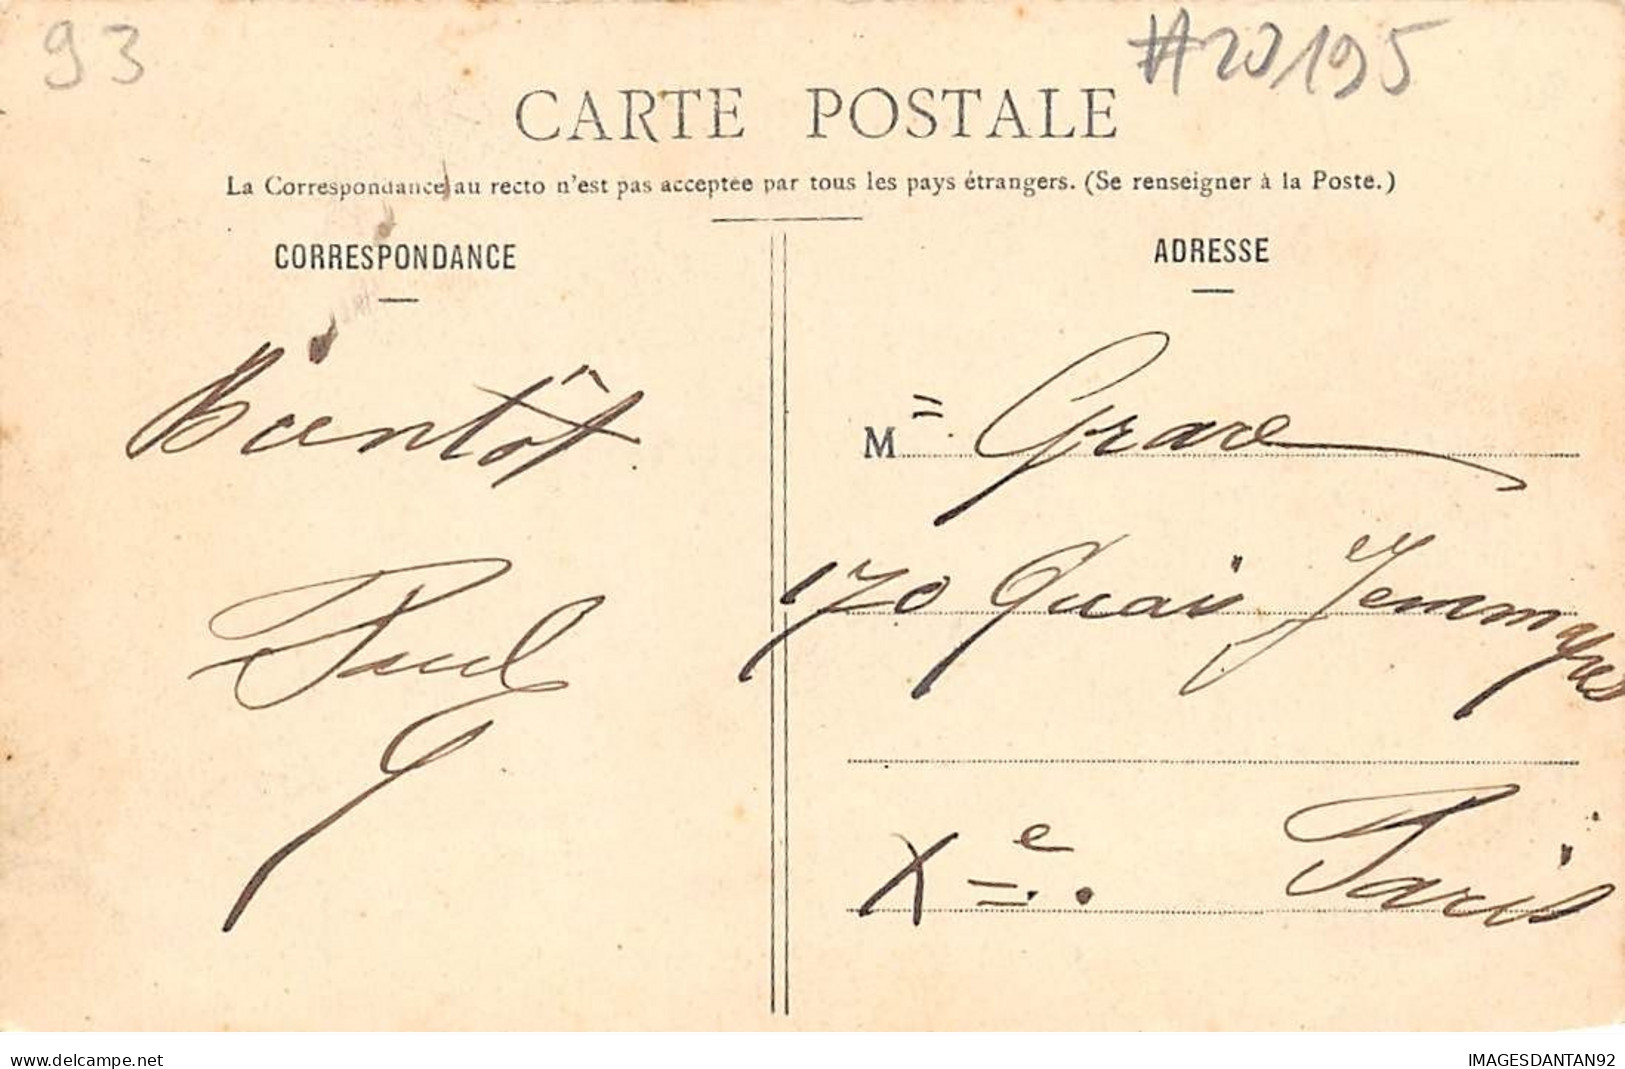 93
#20195
CARTE POSTALE
La Correspondance au recto n'est pas acceptée par tous les pays étrangers. (Se renseigner à la Poste.)
CORRESPONDANCE
ADRESSE
Bientôt
M = Grave
170 Quai Jemmapes
Paul
Xe. Paris
www.delcampe.net
IMAGESDANTAN92